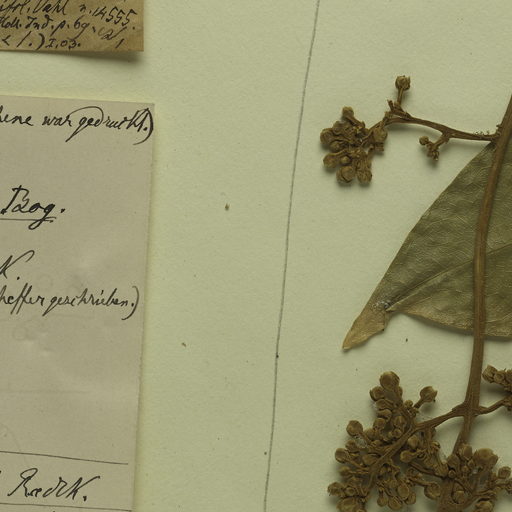 Vahl n. 14555.
Ind. p. 69.
I, 03.
war gedruckt.)
Bog.
K.
heffer geschrieben.)
RadlK.